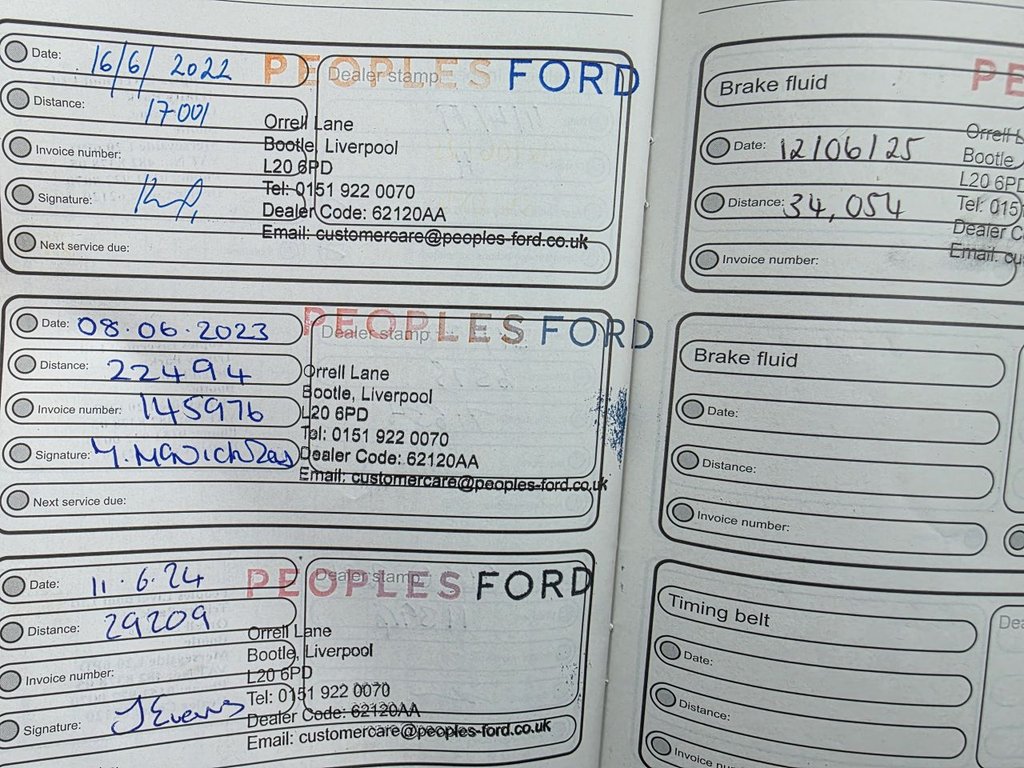 Date: 16/6/2022
PEOPLES FORD
Dealer stamp
Distance: 17001
Orrell Lane
Invoice number:
Bootle, Liverpool
L20 6PD
Signature:
Tel: 0151 922 0070
Dealer Code: 62120AA
Next service due:
Email: customercare@peoples-ford.co.uk
Date: 08.06.2023
PEOPLES FORD
Dealer stamp
Distance: 22494
Orrell Lane
Invoice number: 145976
Bootle, Liverpool
L20 6PD
Signature:
Tel: 0151 922 0070
Dealer Code: 62120AA
Next service due:
Email: customercare@peoples-ford.co.uk
Date: 11.6.24
PEOPLES FORD
Dealer stamp
Distance: 29209
Orrell Lane
Invoice number:
Bootle, Liverpool
L20 6PD
Signature: J Evans
Tel: 0151 922 0070
Dealer Code: 62120AA
Email: customercare@peoples-ford.co.uk
Brake fluid
PE
Date: 12/06/25
Orrell L
Bootle
L20 6PD
Distance: 34,054
Tel: 015
Dealer C
Invoice number:
Email: cu
Brake fluid
Date:
Distance:
Invoice number:
Timing belt
Dea
Date:
Distance:
Invoice nu